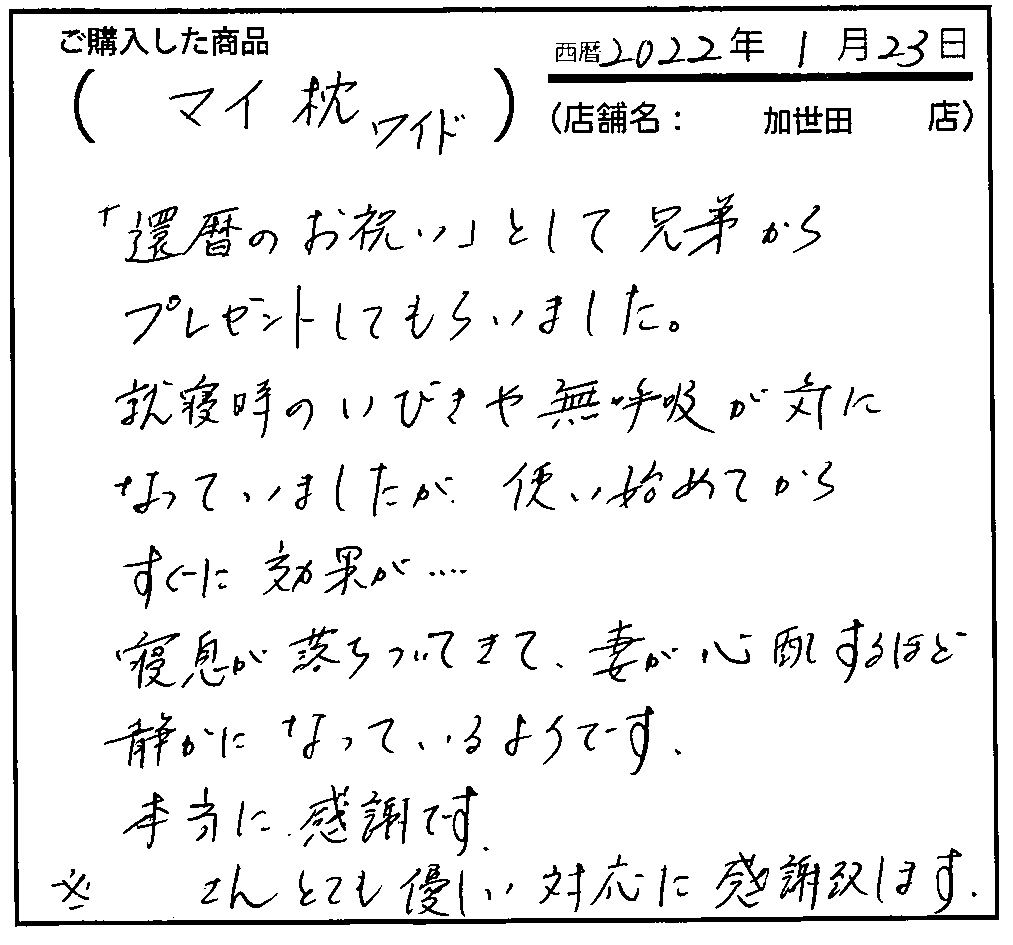 ご購入した商品
西暦2022年 1月23日
(マイ枕ワイド)
(店舗名： 加世田 店)
「還暦のお祝い」として兄弟から
プレゼントしてもらいました。
就寝時のいびきや無呼吸が気に
なっていましたが、使い始めてから
すぐに効果が....
寝息が落ちついてきて、妻が心配するほど
静かになっているようです.
本当に感謝です.
※ さんとても優しい対応に感謝致します.